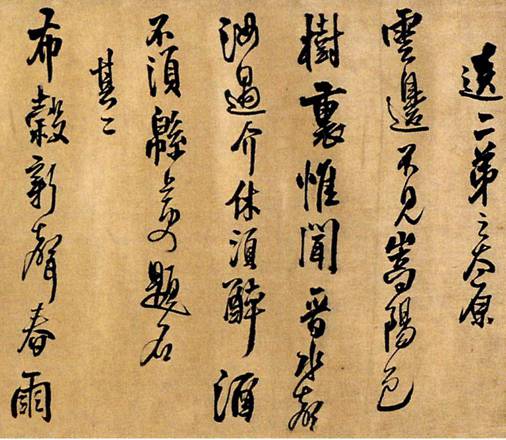 送二弟之太原
雲邊不見嵩陽色
樹裏惟聞晉水聲
汝過介休須醉酒
不須緜上更題名
其二
布穀新聲春雨